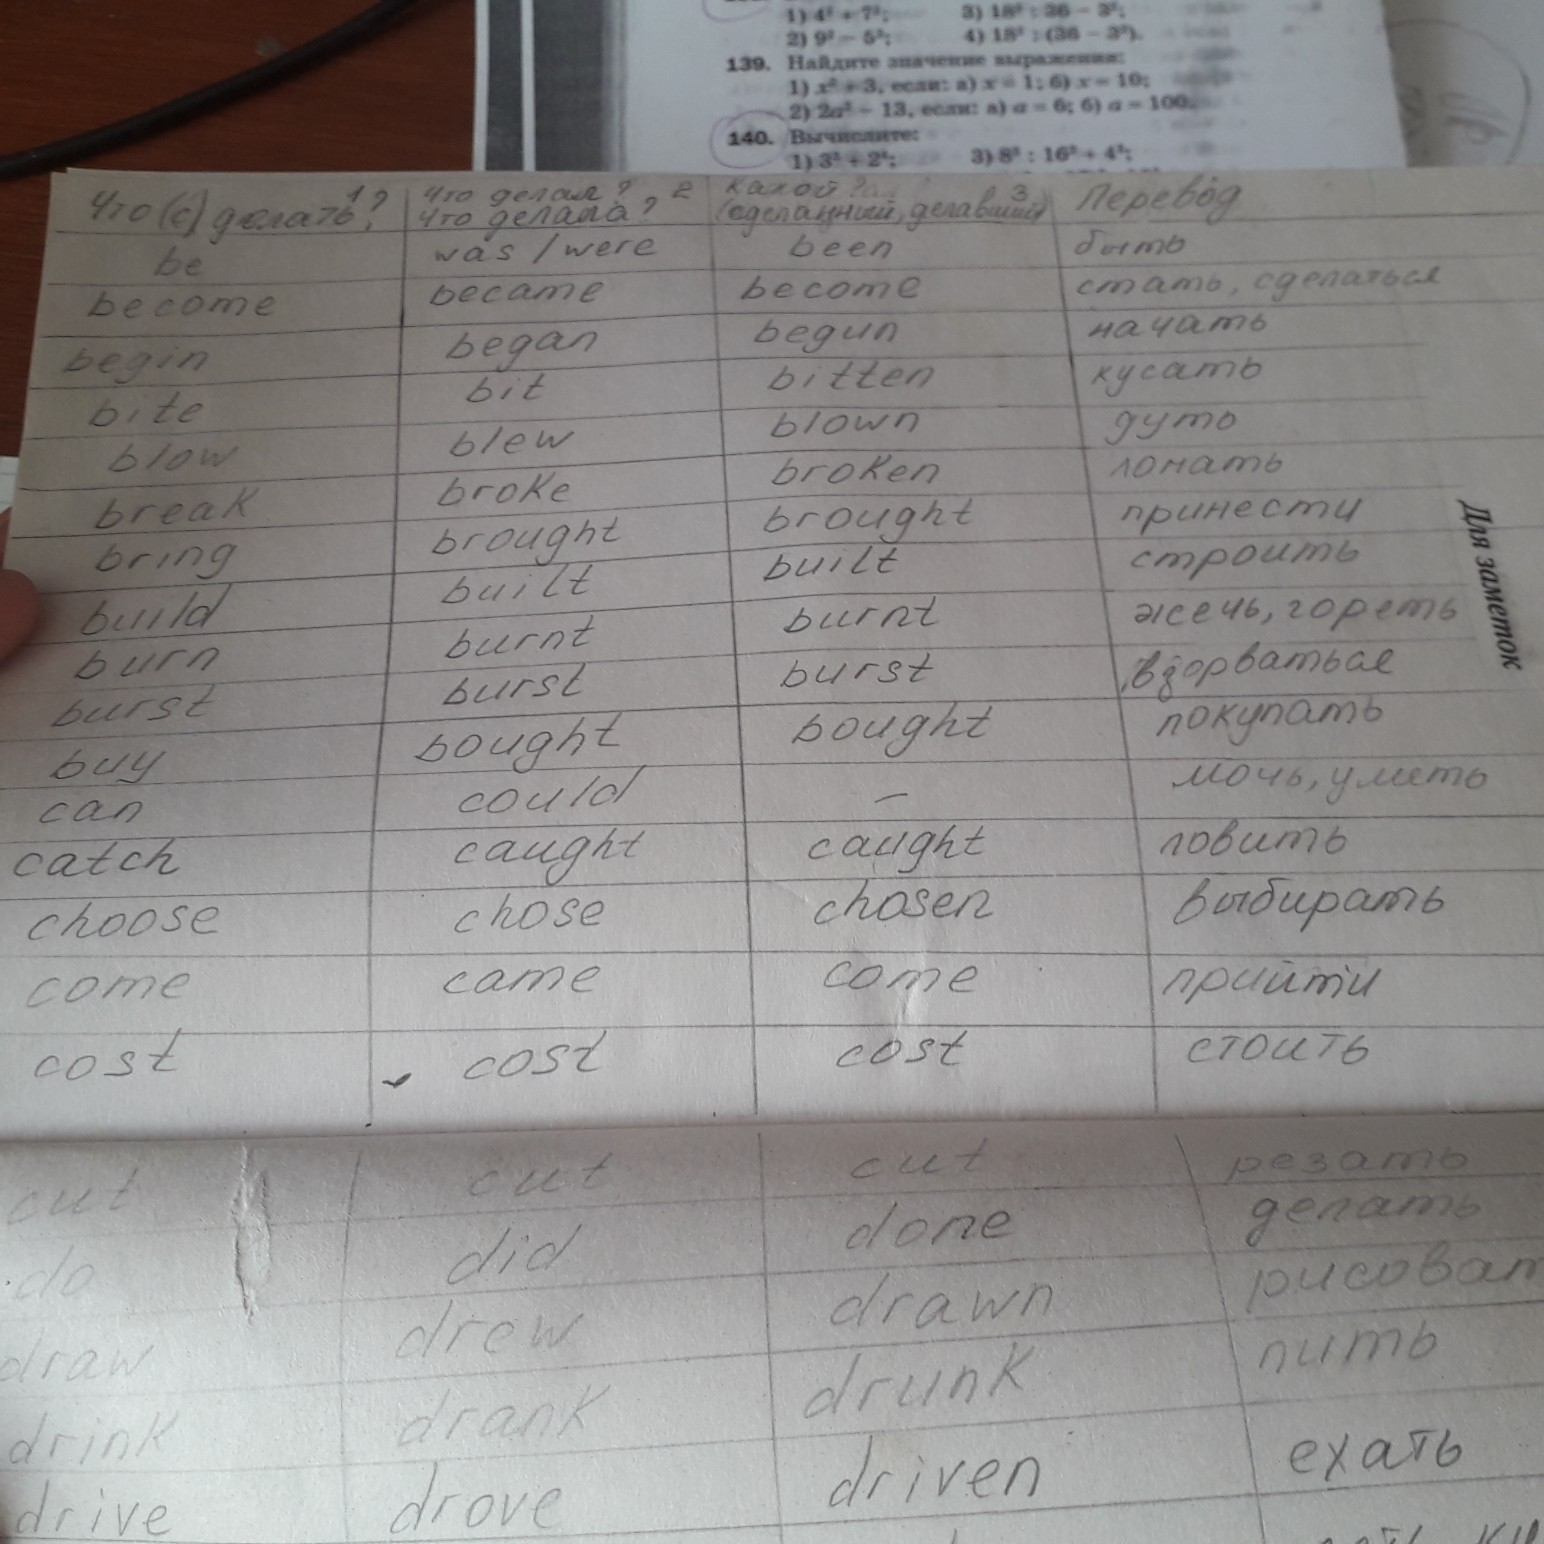 1) 4² + 7²; 3) 18² : 36 − 3²;
2) 9² − 5²; 4) 18² : (36 − 3²).
139. Найдите значение выражения:
1) x² + 3, если: а) x = 1; б) x = 10;
2) 2a² − 13, если: а) a = 6; б) a = 100.
140. Вычислите:
1) 3² + 2⁴; 3) 8³ : 16² + 4³;
Что (с) делать? 1 Что делал? 2 Какой? 3 Перевод
Что делала? (сделанный, делавший)
be was / were been быть
become became become стать, сделаться
begin began begun начать
bite bit bitten кусать
blow blew blown дуть
break broke broken ломать
bring brought brought принести
build built built строить
burn burnt burnt жечь, гореть
burst burst burst взорваться
buy bought bought покупать
can could – мочь, уметь
catch caught caught ловить
choose chose chosen выбирать
come came come прийти
cost cost cost стоить
cut cut cut резать
do did done делать
draw drew drawn рисоват
drink drank drunk пить
drive drove driven ехать
Для заметок